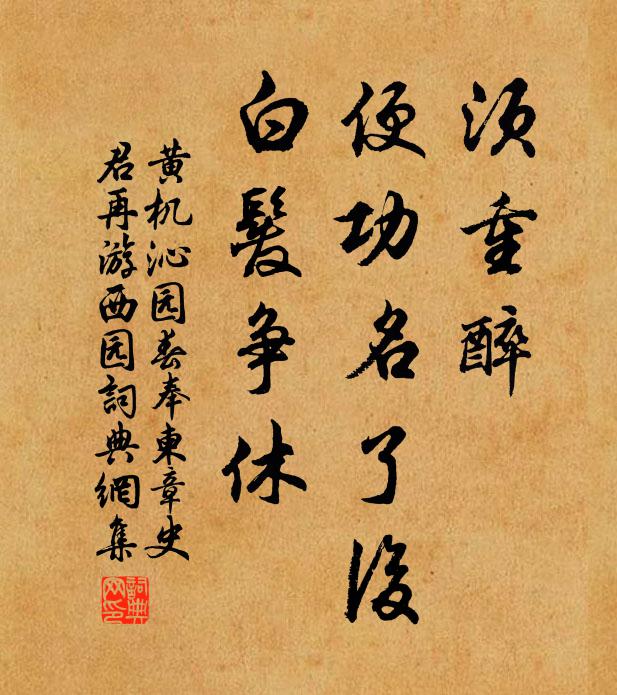 须重醉
便功名了後
白髮争休
黄机沁园春奉柬章史
君再游西园詞典網集
詞典
网印